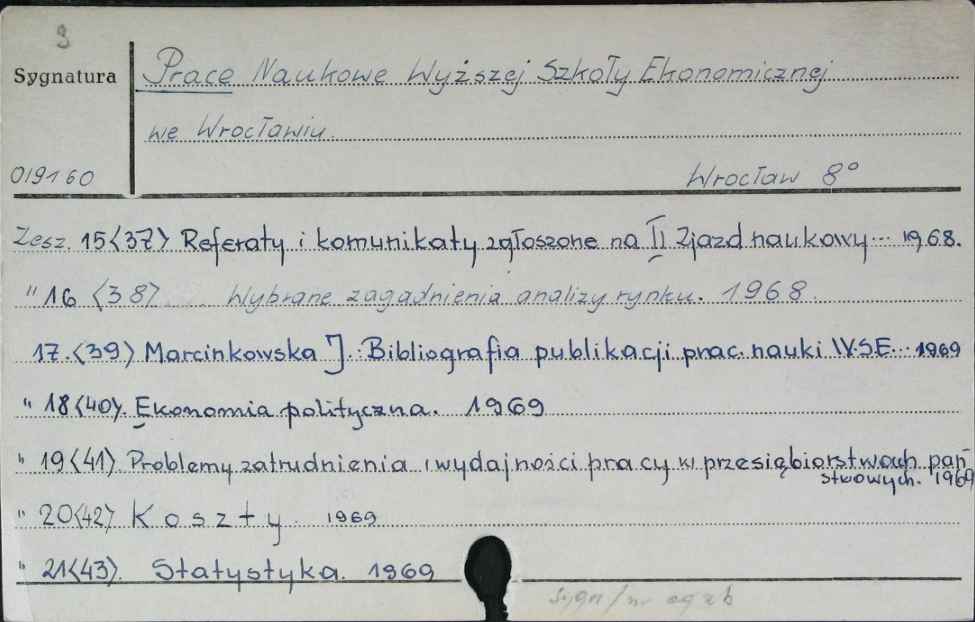 9
Sygnatura
Prace Naukowe Wyższej Szkoły Ekonomicznej
we Wrocławiu
019160
Wrocław 8°
Zesz. 15<37> Referaty i komunikaty zgłoszone na II Zjazd naukowy... 1968.
" 16 <38> Wybrane zagadnienia analizy rynku. 1968.
17.<39> Marcinkowska J.: Bibliografia publikacji prac. nauki W.S.E... 1969
" 18<40>. Ekonomia polityczna. 1969
" 19<41> Problemy zatrudnienia i wydajności pracy w przesiębiorstwach pań-
stwowych. 1969
" 20<42> Koszty. 1969
" 21<43>. Statystyka. 1969
sygn/nr